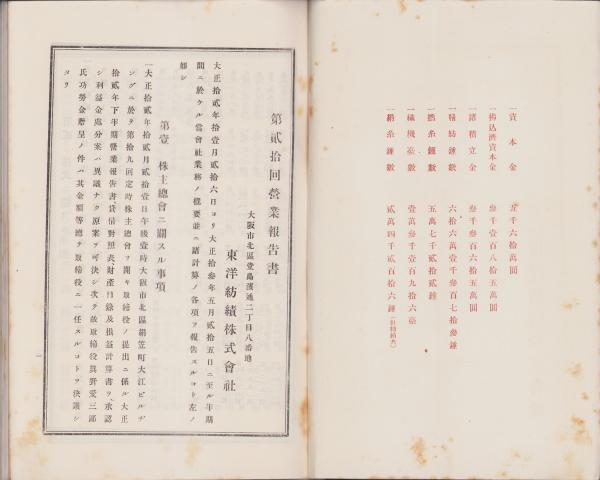 一資本金　五千六拾萬圓
一拂込濟資本金　參千壹百八拾五萬圓
一諸積立金　參千參百六拾五萬圓
一精紡錘數　六拾六萬壹千參百七拾參錘
一撚糸錘數　五萬七千貳拾貳錘
一織機臺數　壹萬參千壹百九拾六臺
一絹糸錘數　貳萬四千貳百拾六錘
第貳拾回營業報告書
大阪市北區堂島濱通二丁目八番地
東洋紡績株式會社
大正拾貳年拾壹月貳拾六日ヨリ大正拾參年五月貳拾五日ニ至ル半期
間ニ於ケル當會社業務ノ概要並ニ諸計算ノ各項ヲ報告スルコト左ノ
如シ
第壹　株主總會ニ關スル事項
一大正拾貳年拾貳月貳拾壹日午後壹時大阪市北區絹笠町大江ビルヂ
ングニ於テ第拾九回定時株主總會ヲ開キ取締役ノ提出ニ係ル大正
拾貳年下半期營業報告書、貸借對照表、財產目錄及損益計算書ヲ承認
シ利益金處分案ハ異議ナク原案ヲ可決シ次テ故取締役眞野愛三郎
氏功勞金贈呈ノ件ハ其金額等總テ取締役ニ一任スルコトヲ決議シ
タリ